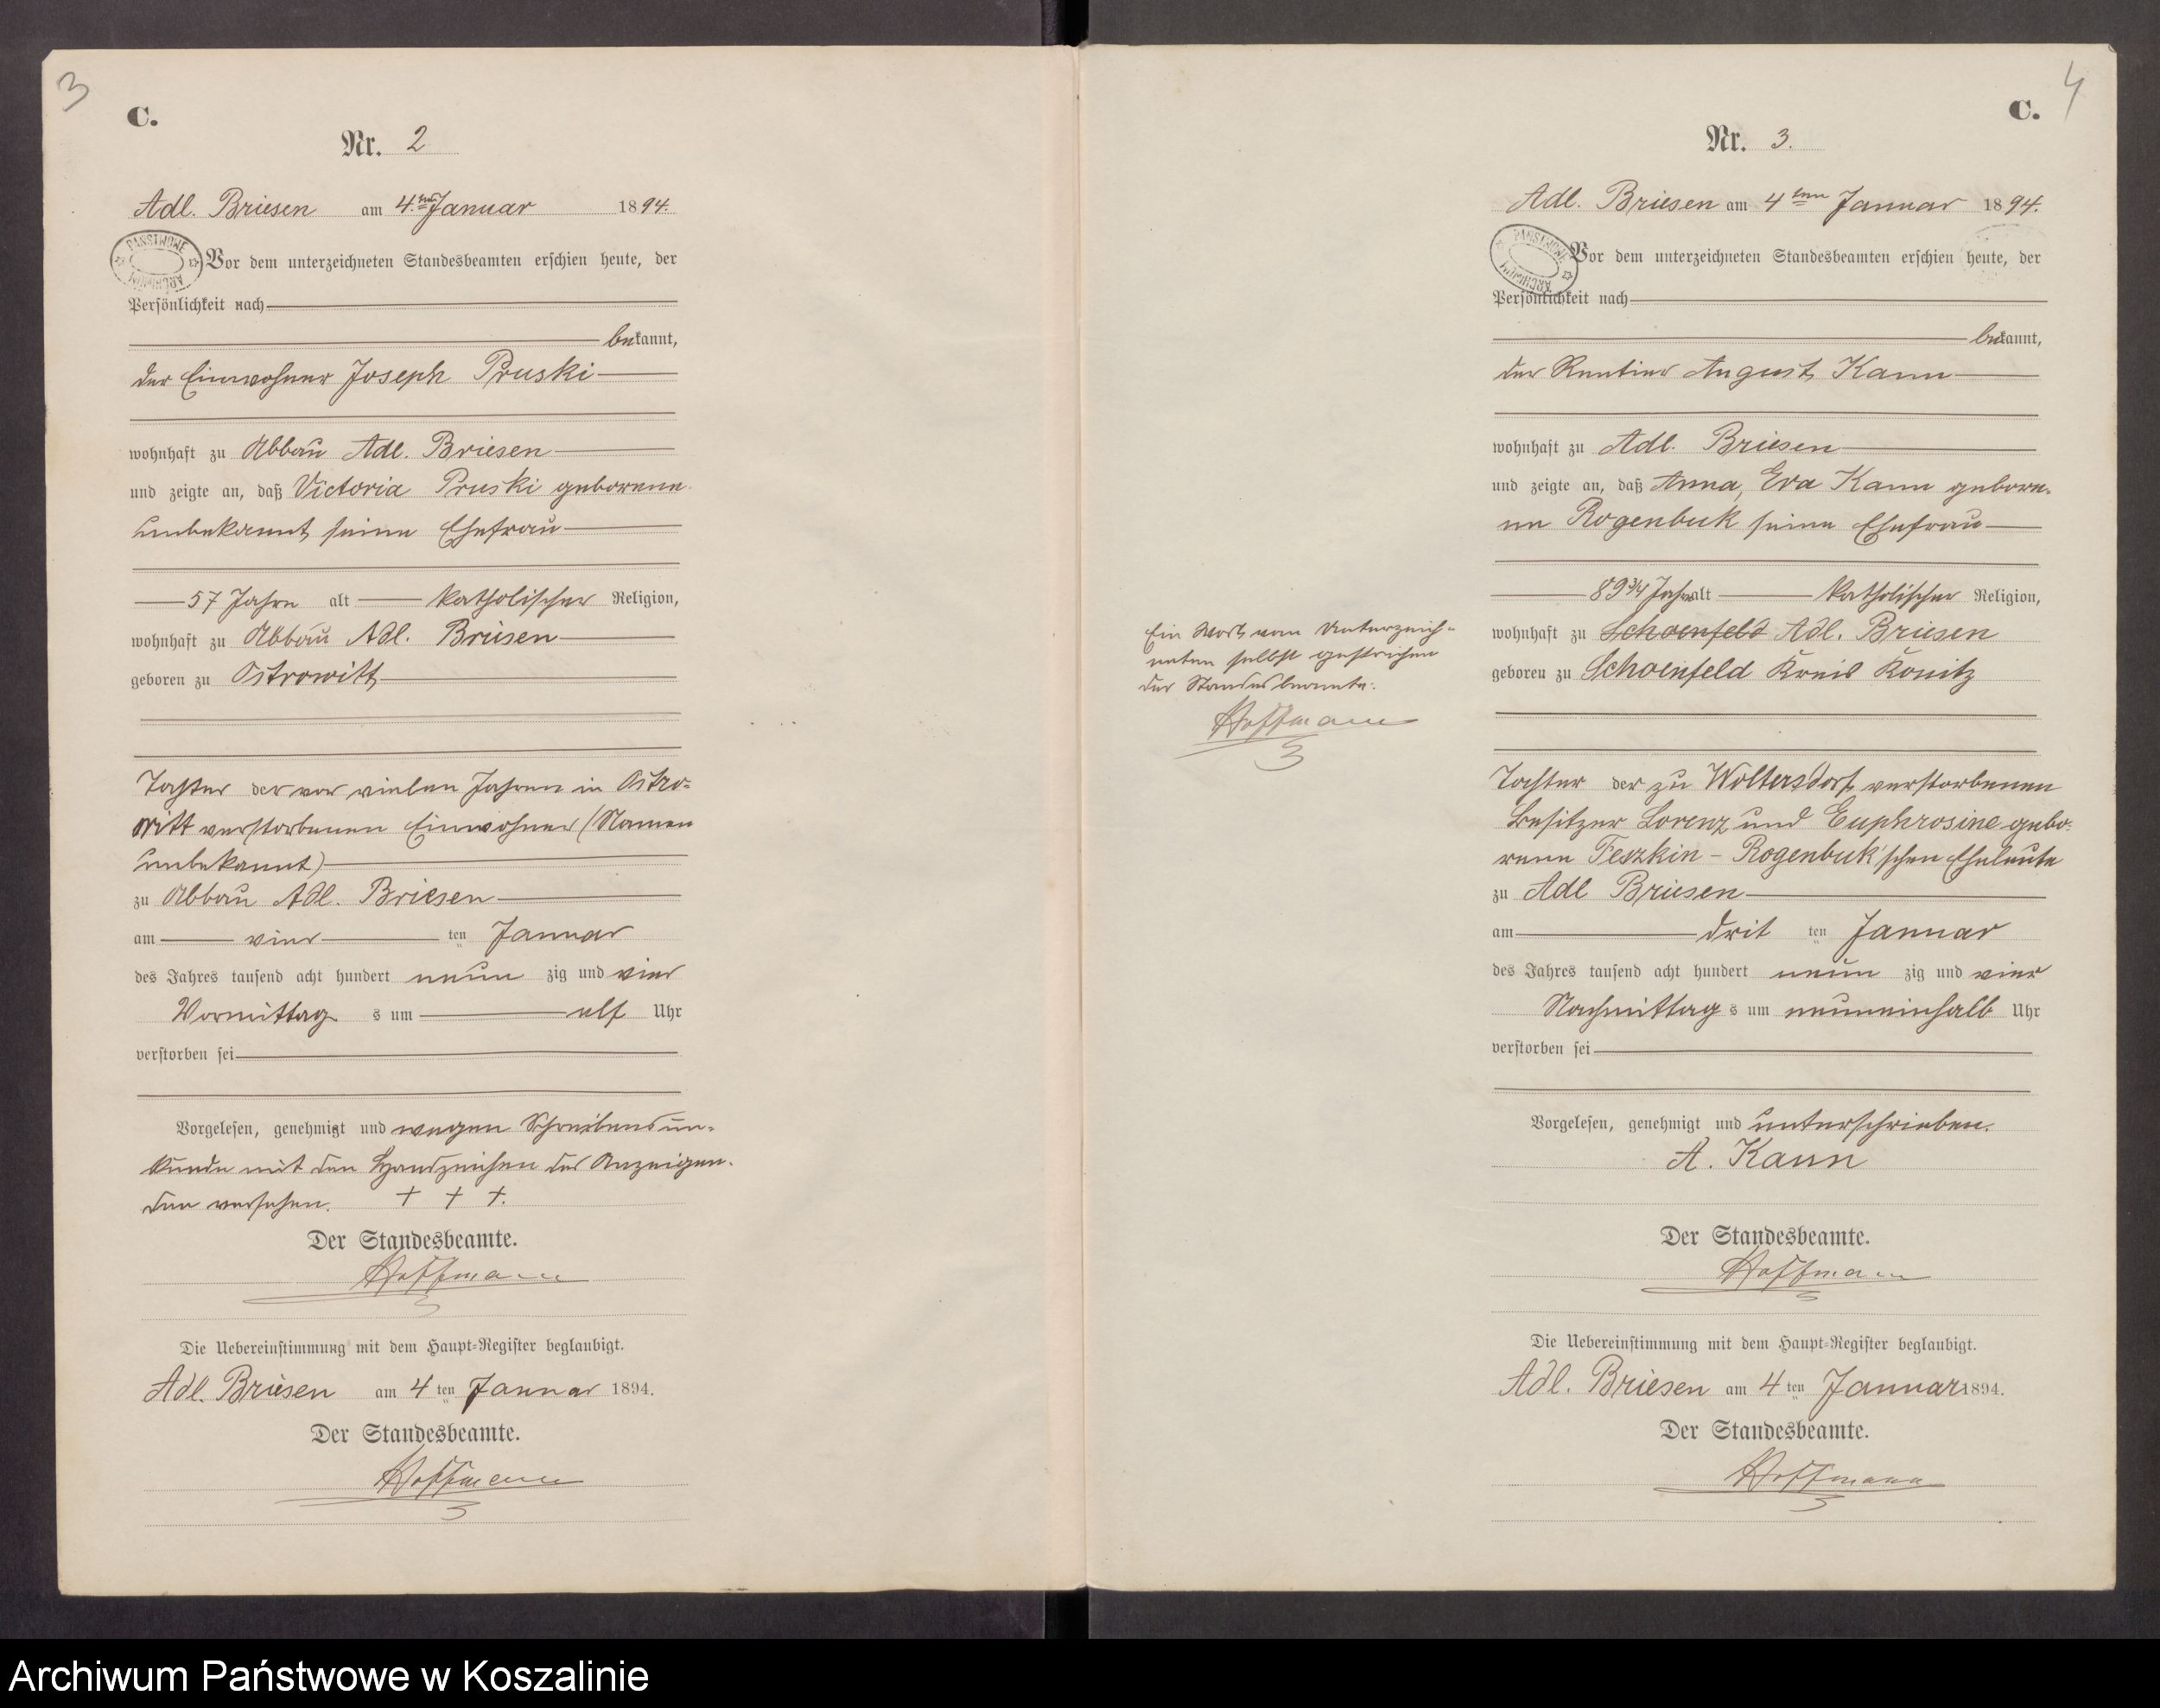 3
C.
Nr. 2
Adl. Briesen am 4ten Januar 1894.
PANSTWOWE ARCHIWUM
Vor dem unterzeichneten Standesbeamten erschien heute, der
Persönlichkeit nach
bekannt,
der Einwohner Joseph Pruski
wohnhaft zu Abbau Adl. Briesen
und zeigte an, daß Victoria Pruski geborene
unbekannt seine Ehefrau
57 Jahre alt katholischer Religion,
wohnhaft zu Abbau Adl. Briesen
geboren zu Ostrowitt
Tochter der vor vielen Jahren in Ostro-
witt verstorbenen Einwohner (Namen
unbekannt)
zu Abbau Adl. Briesen
am vier ten Januar
des Jahres tausend acht hundert neun zig und vier
Vormittag s um elf Uhr
verstorben sei
Vorgelesen, genehmigt und wegen Schreibensun-
kunde mit den Handzeichen des Anzeigen-
den versehen. + + +.
Der Standesbeamte.
Hoffmann
Die Uebereinstimmung mit dem Haupt-Register beglaubigt.
Adl. Briesen am 4 ten Januar 1894.
Der Standesbeamte.
Hoffmann
4
C.
Nr. 3.
Adl. Briesen am 4ten Januar 1894.
PANSTWOWE ARCHIWUM
Vor dem unterzeichneten Standesbeamten erschien heute, der
Persönlichkeit nach
bekannt,
der Rentier August Kann
wohnhaft zu Adl. Briesen
und zeigte an, daß Anna, Eva Kann gebore-
ne Rogenbuk seine Ehefrau
89 3/4 Jahre alt katholischer Religion,
wohnhaft zu Schoenfeld Adl. Briesen
geboren zu Schoenfeld Kreis Konitz
Tochter der zu Woltersdorf verstorbenen
Besitzer Lorenz und Euphrosine gebo-
rene Feszkin - Rogenbuk'schen Eheleute
zu Adl Briesen
am drit ten Januar
des Jahres tausend acht hundert neun zig und vier
Nachmittag s um neuneinhalb Uhr
verstorben sei
Vorgelesen, genehmigt und unterschrieben.
A. Kann
Der Standesbeamte.
Hoffmann
Die Uebereinstimmung mit dem Haupt-Register beglaubigt.
Adl. Briesen am 4 ten Januar 1894.
Der Standesbeamte.
Hoffmann
Ein Wort vom Unterzeich-
neten selbst gestrichen
Der Standesbeamte:
Hoffmann
Archiwum Państwowe w Koszalinie